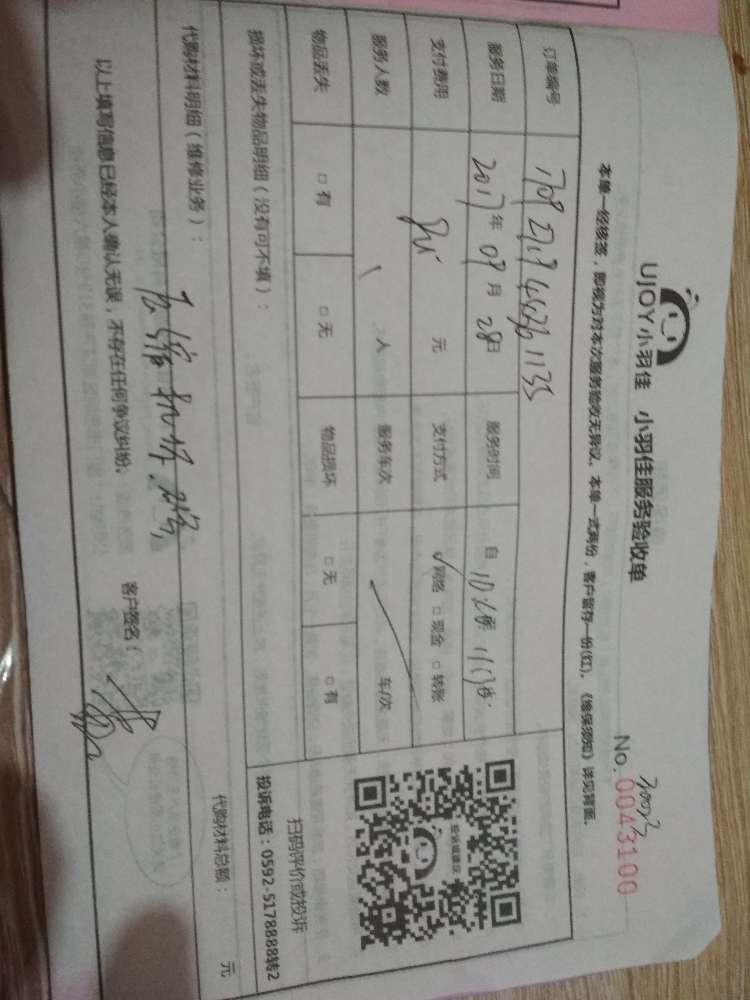 UJOY小羽佳 小羽佳服务验收单
No. 0043100
本单一经核签，即视为对本次服务验收无异议。本单一式两份，客户留存一份(红)。《维保须知》详见背面。
订单编号
服务日期 2017年09月28日 服务时间 自
支付费用 元 支付方式 ✓网络 □现金 □转账
服务人数 人 服务车次 车/次
物品丢失 □有 □无 物品损坏 □无 □有
投诉或建议
扫码评价或投诉
投诉电话：0592-5178888转2
损坏或丢失物品明细（没有可不填）：
代购材料明细（维修业务）： 代购材料总额： 元
以上填写信息已经本人确认无误，不存在任何争议纠纷。 客户签名：